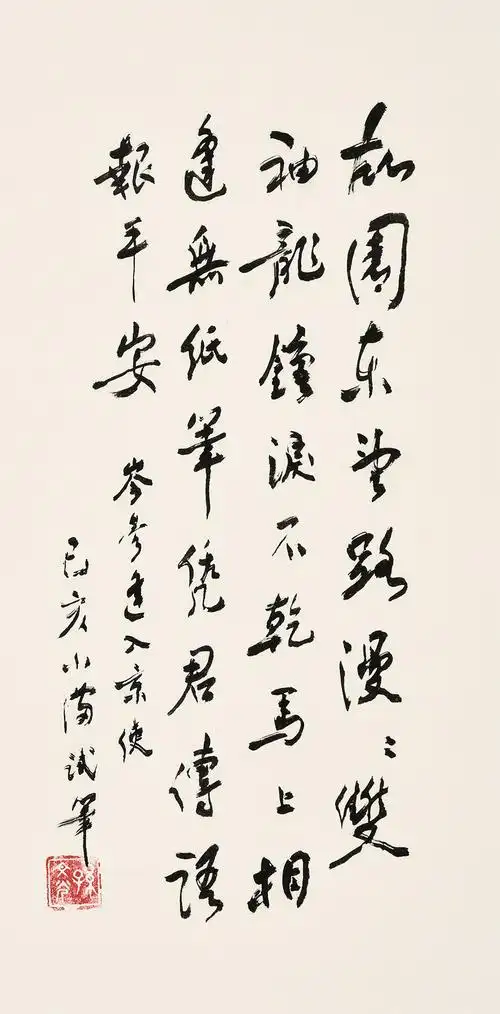 故園東望路漫〻雙
袖龍鍾淚不乾馬上相
逢無紙筆凭君傳語
報平安
岑參逢入京使
己亥小滿試筆